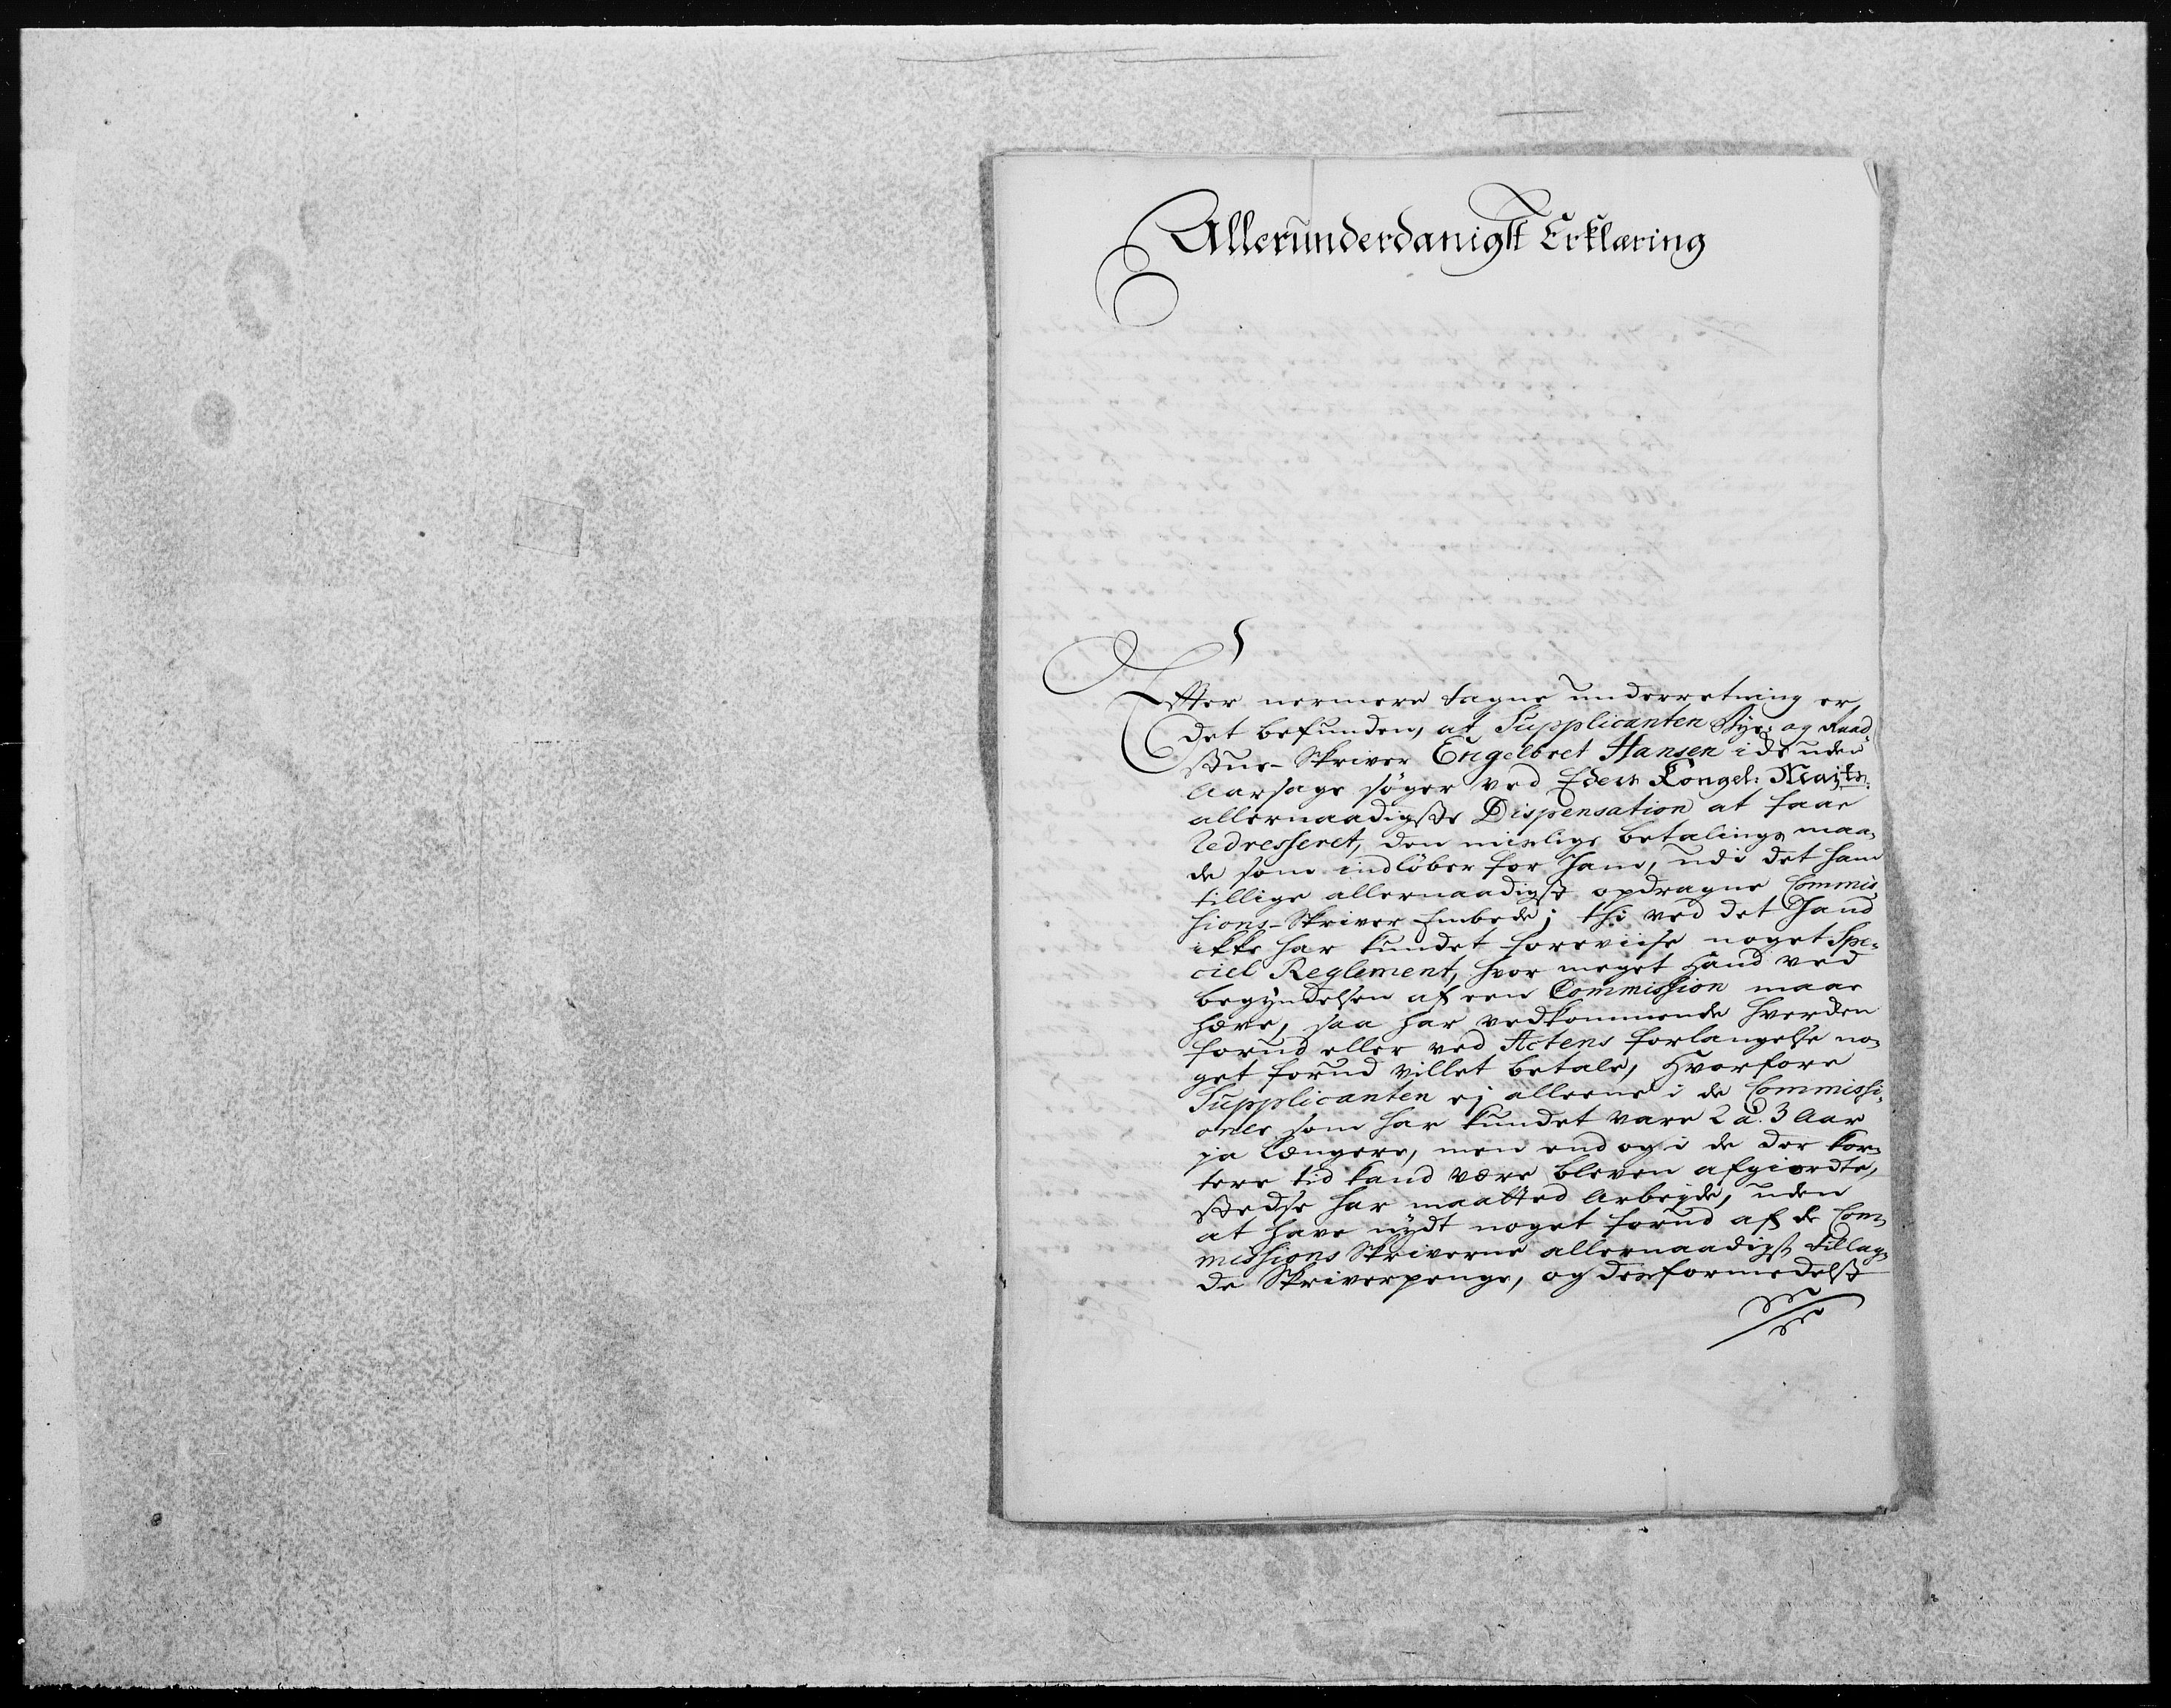 Allerunderdanigst Erklæring
Efter nermere tagne underretning er,
det befunden, at Supplicanten Bye- og Raad
stue-Skriver Engelbret Hansen i de uden
Aarsage søger ved Eders Kongel: Maits:
allernaadigste Dispensation at faae
Redresseret, den mislige betalings maa-
de som indløber for Ham, udi det ham
tillige allernaadigst opdragne Commis-
sions-Skriver Embede; thi ved det Hand
ikke har kundet foreviise noget Spe-
ciel Reglement, hvor meget Hand ved
begyndelsen af een Commission maae
hæve, saa har vedkommende hverden
forud eller ved Actens forlangelse no-
get forud villet betale, Hvorfore
Supplicanten ej alleene i de Commissi-
oner som har kundet vare 2 à. 3 Aar
ja længere, men endog i de der kor-
tere tid kand være bleven afgiordte,
stedse har maatted Arbejde, uden
at have nydt noget forud af de Com-
missions Skriverne allernaadigst tillag-
de Skriverpenge, og desformedelst